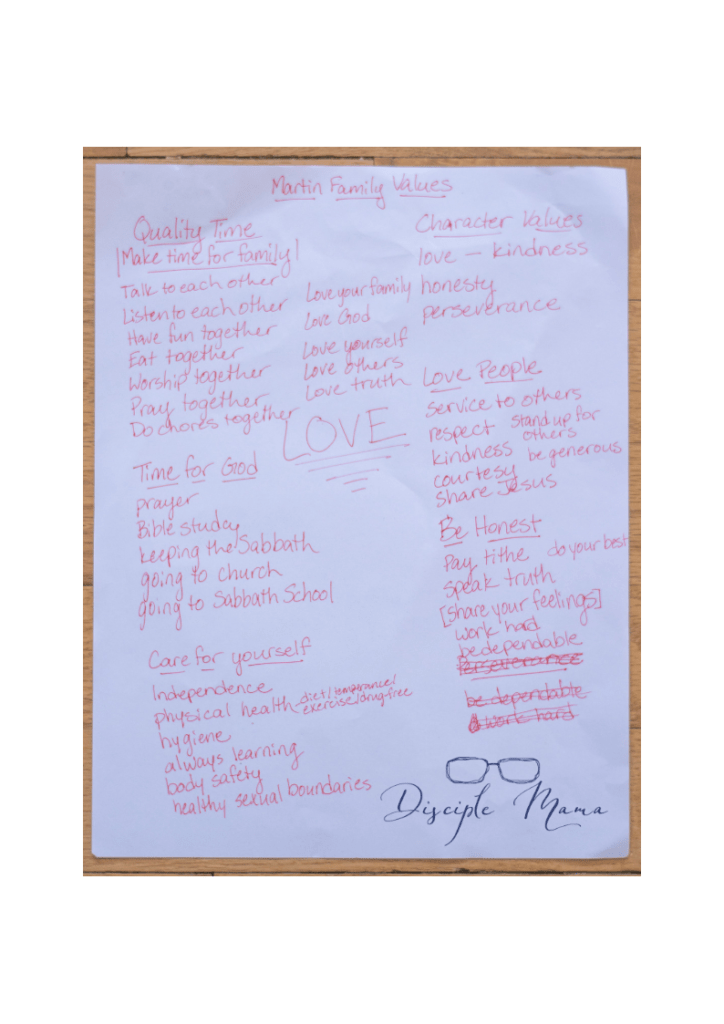 Martin Family Values
Quality Time
|Make time for family|
Talk to each other
Listen to each other
Have fun together
Eat together
Worship together
Pray together
Do chores together
Love your family
Love God
Love yourself
Love others
Love truth
LOVE
Time for God
prayer
Bible study
keeping the Sabbath
going to church
going to Sabbath School
Care for yourself
Independence
physical health - diet/temperance/
exercise/drug-free
hygiene
always learning
body safety
healthy sexual boundaries
Character Values
love — kindness
honesty
perseverance
Love People
service to others
respect stand up for
others
kindness be generous
courtesy
share Jesus
Be Honest
Pay tithe do your best
speak truth
[share your feelings]
work hard
be dependable
Perseverance
be dependable
work hard
Disciple Mama